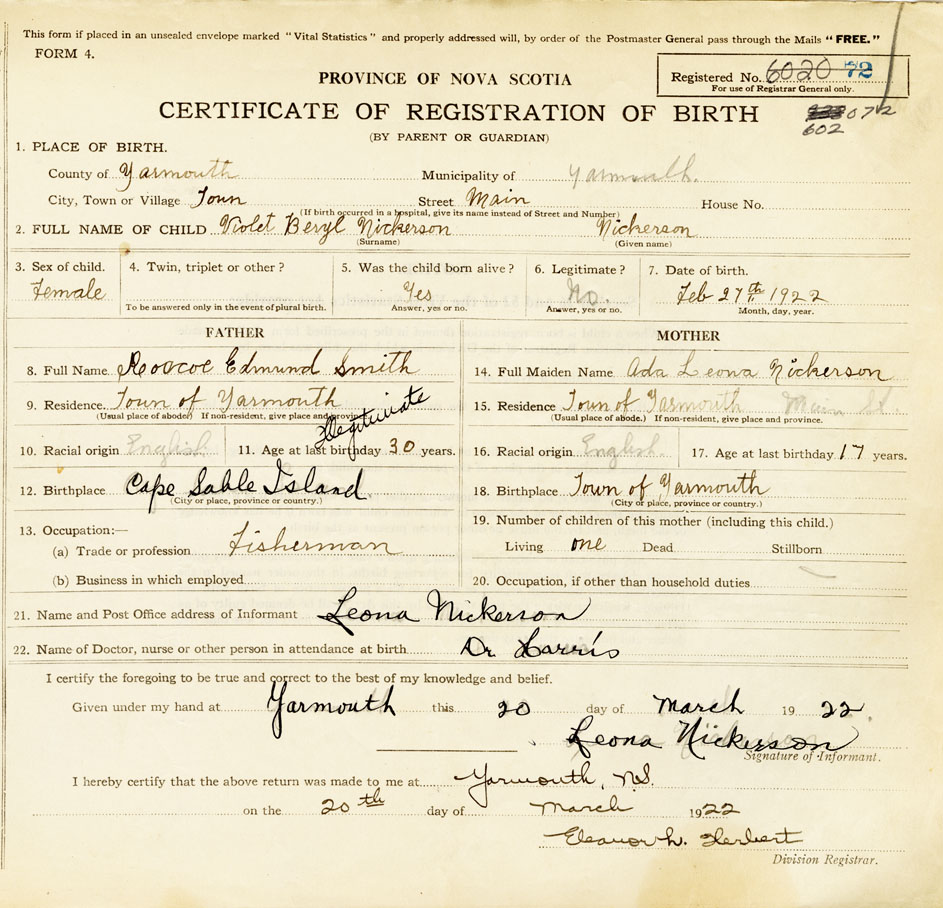 This form if placed in an unsealed envelope marked "Vital Statistics" and properly addressed will, by order of the Postmaster General pass through the Mails "FREE."
FORM 4.
PROVINCE OF NOVA SCOTIA
Registered No. 6020 72
For use of Registrar General only.
CERTIFICATE OF REGISTRATION OF BIRTH
072
602
(BY PARENT OR GUARDIAN)
1. PLACE OF BIRTH.
County of Yarmouth Municipality of Yarmouth.
City, Town or Village Town Street Main House No.
(If birth occurred in a hospital, give its name instead of Street and Number)
2. FULL NAME OF CHILD Violet Beryl Nickerson Nickerson
(Surname) (Given name)
3. Sex of child. 4. Twin, triplet or other? 5. Was the child born alive? 6. Legitimate? 7. Date of birth.
Female Yes No. Feb 27th 1922
To be answered only in the event of plural birth. Answer, yes or no. Answer, yes or no. Month, day, year.
FATHER MOTHER
8. Full Name Roscoe Edmund Smith 14. Full Maiden Name Ada Leona Nickerson
9. Residence Town of Yarmouth 15. Residence Town of Yarmouth Main St.
(Usual place of abode) If non-resident, give place and province. (Usual place of abode.) If non-resident, give place and province.
Illegitimate
10. Racial origin English 11. Age at last birthday 30 years. 16. Racial origin English. 17. Age at last birthday 17 years.
12. Birthplace Cape Sable Island 18. Birthplace Town of Yarmouth
(City or place, province or country.) (City or place, province or country.)
13. Occupation:— 19. Number of children of this mother (including this child.)
(a) Trade or profession Fisherman Living one Dead Stillborn
(b) Business in which employed 20. Occupation, if other than household duties
21. Name and Post Office address of Informant Leona Nickerson
22. Name of Doctor, nurse or other person in attendance at birth Dr Harris
I certify the foregoing to be true and correct to the best of my knowledge and belief.
Given under my hand at Yarmouth this 20 day of March 1922.
Leona Nickerson
Signature of Informant.
I hereby certify that the above return was made to me at Yarmouth, N.S.
on the 20th day of March 1922
Eleanor L. Herbert
Division Registrar.